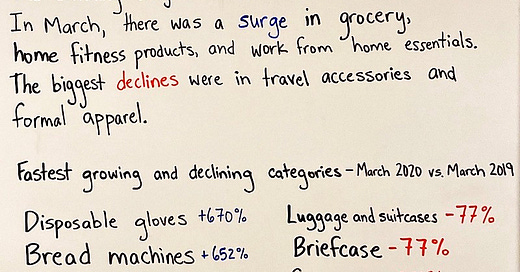 In March, there was a surge in grocery,
home fitness products, and work from home essentials.
The biggest declines were in travel accessories and
formal apparel.
Fastest growing and declining categories - March 2020 vs. March 2019
Disposable gloves +670% Luggage and suitcases -77%
Bread machines +652% Briefcase -77%